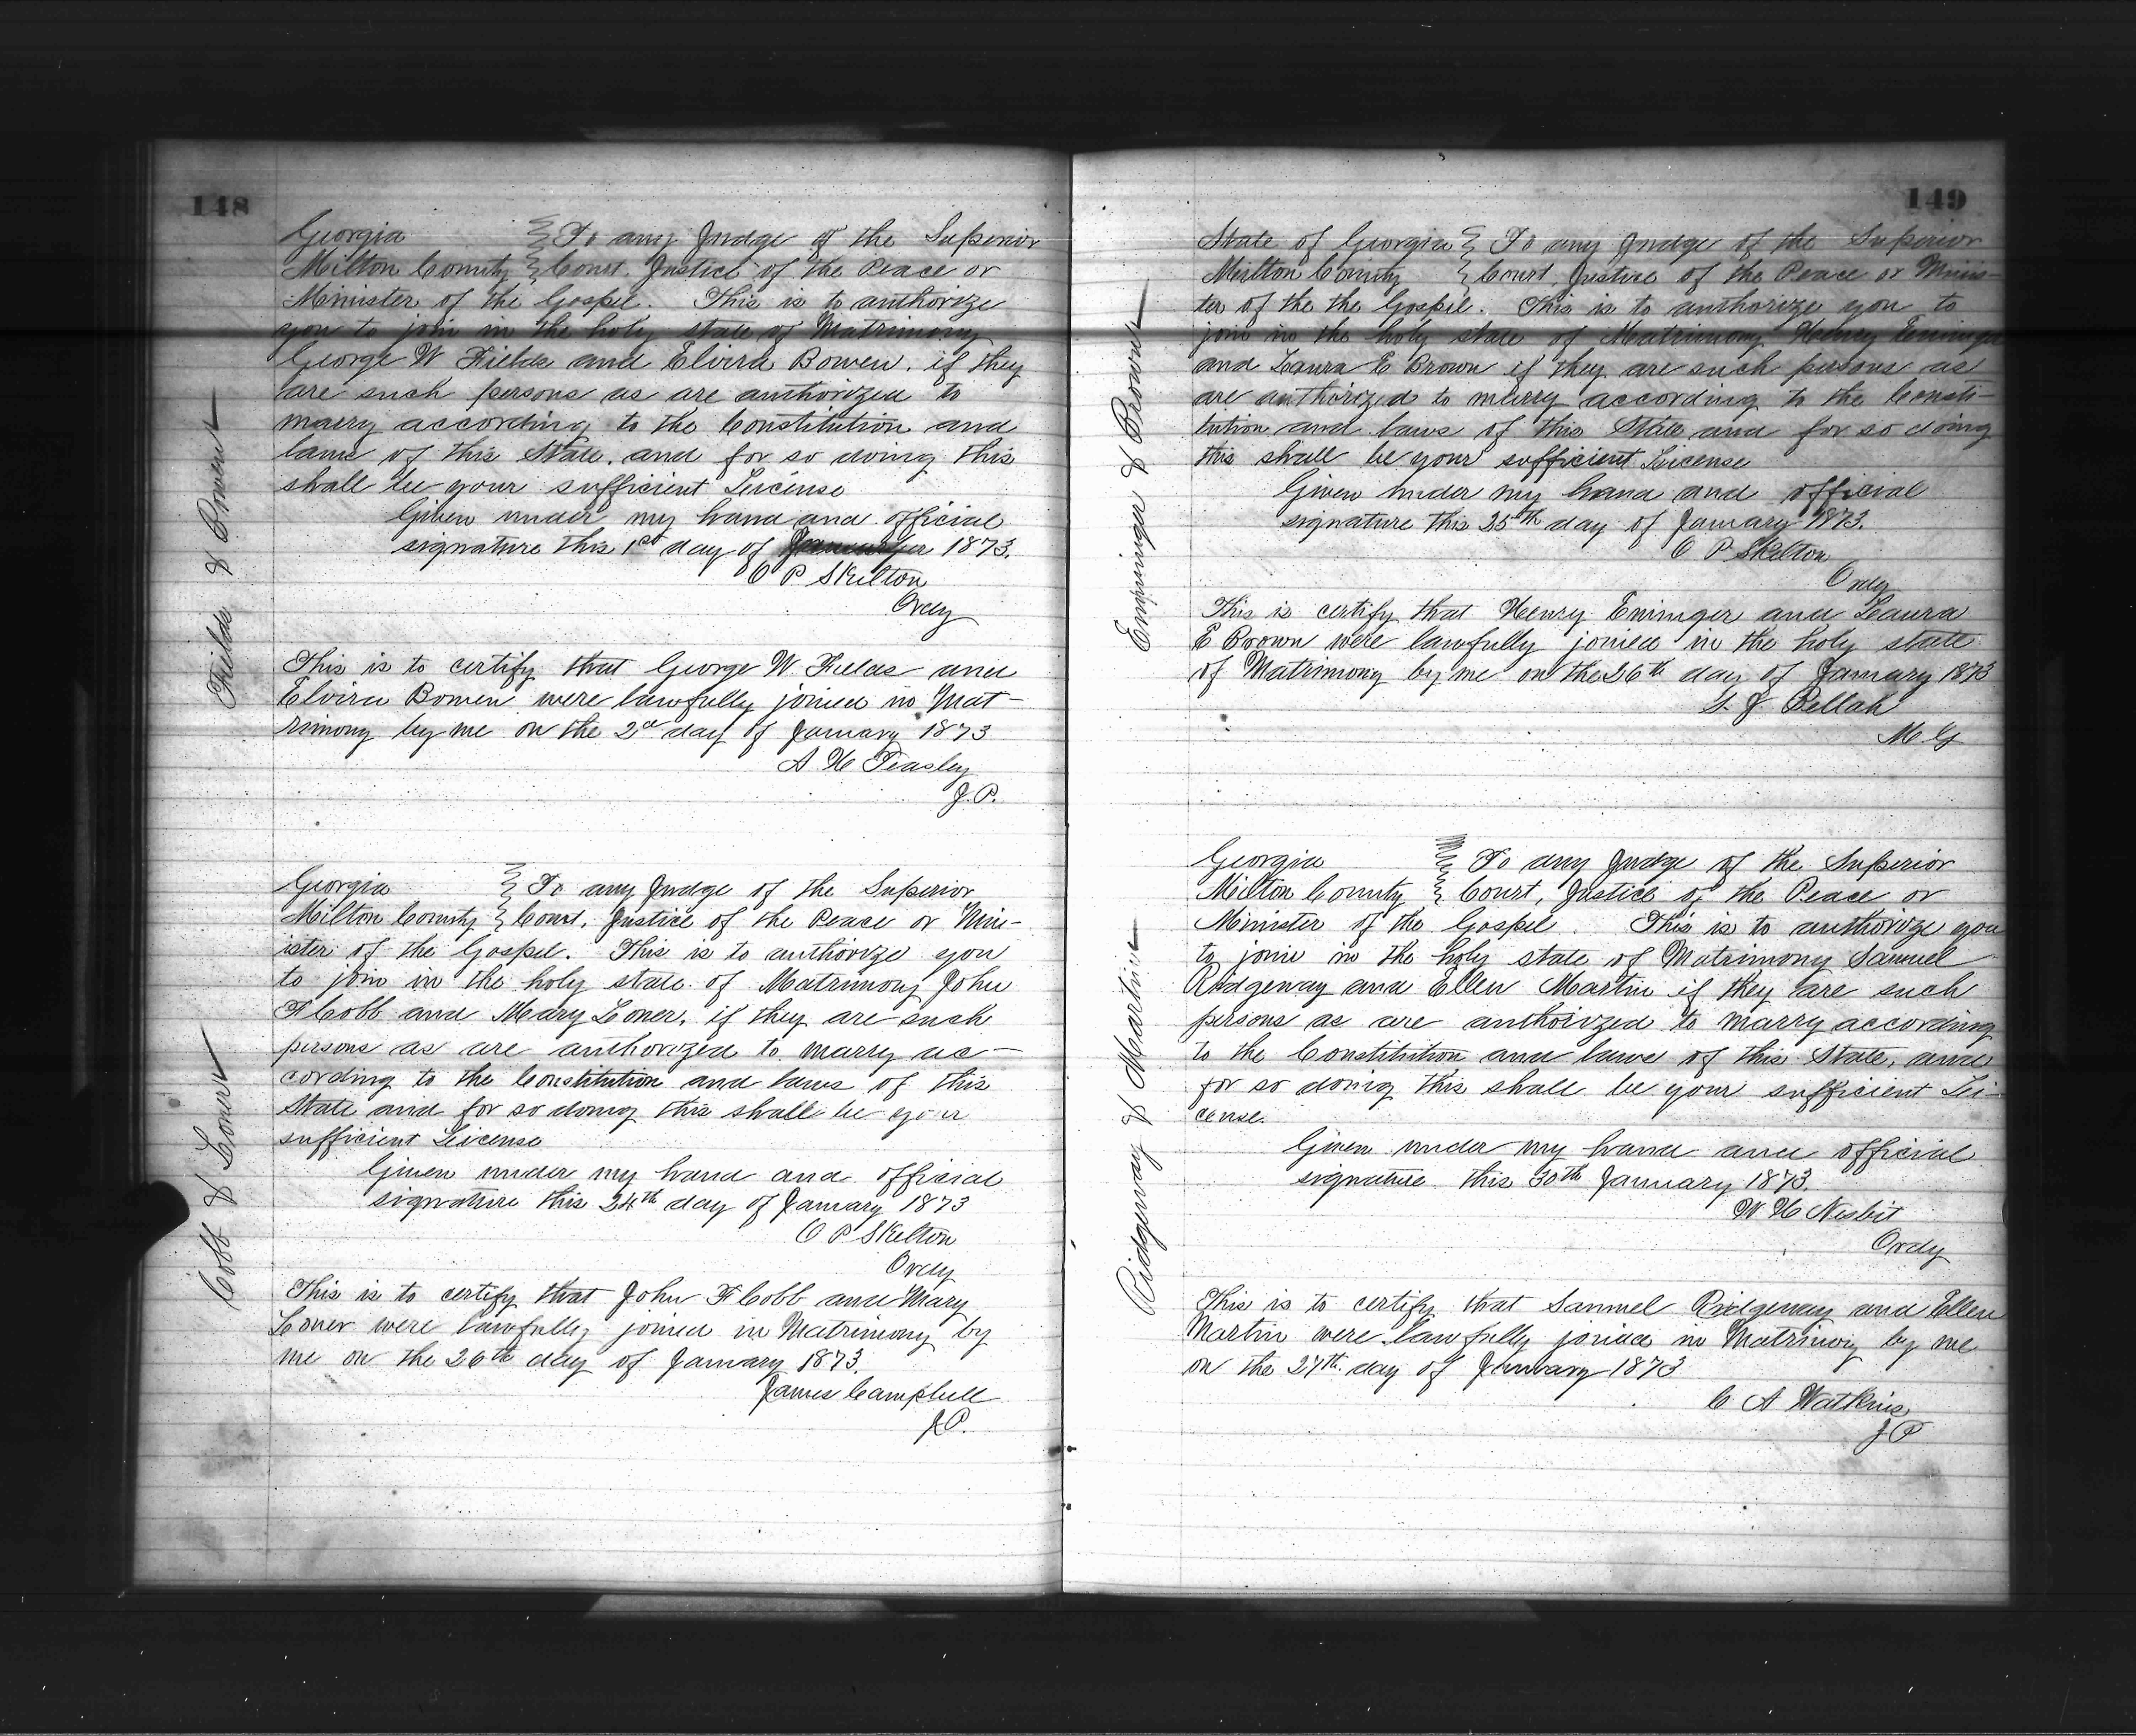 148
Fields & Bowen
Georgia To any Judge of the Superior
Milton County Court. Justice of the Peace or
Minister of the Gospel. This is to authorize
you to join in the holy state of Matrimony
George W Fields and Elvira Bowen. if they
are such persons as are authorized to
marry according to the Constitution and
laws of this State. and for so doing this
shall be your sufficient License
Given under my hand and official
signature this 1st day of 1873.
O P Skelton
Ordy
This is to certify that George W. Fields and
Elvira Bowen were lawfully joined in Mat-
rimony by me on the 2d day of January 1873
A H Teasley
J.P.
Cobb & Loner
Georgia To any Judge of the Superior
Milton County Court. Justice of the Peace or Min-
ister of the Gospel. This is to authorize you
to join in the holy state of Matrimony John
F Cobb and Mary Loner, if they are such
persons as are authorized to marry ac-
cording to the Constitution and laws of this
State and for so doing this shall be your
sufficient License
Given under my hand and official
signature this 24th day of January 1873
O P Skelton
Ordy
This is to certify that John F Cobb and Mary
Loner were lawfully joined in Matrimony by
me on the 26th day of January 1873.
James Campbell
J.P.
149
& Brown
State of Georgia To any Judge of the Superior
Milton County Court Justice of the Peace or Minis-
ter of the the Gospel. This is to authorize you to
join in the holy state of Matrimony Henry Eminger
and Laura E Brown if they are such persons as
are authorized to marry according to the Consti-
tution and laws of this State and for so doing
this shall be your sufficient License
Given under my hand and official
signature this 25th day of January 1873.
O P Skelton
Ordy
This is certify that Henry Eminger and Laura
E Brown were lawfully joined in the holy state
of Matrimony by me on the 26th day of January 1873
J Bellah
M G
Ridgeway & Martin
Georgia To any Judge of the Superior
Milton County Court, Justice of the Peace or
Minister of the Gospel. This is to authorize you
to join in the holy state of Matrimony Samuel
Ridgeway and Ellen Martin if they are such
persons as are authorized to marry according
to the Constitution and laws of this State, and
for so doing this shall be your sufficient Li-
cense.
Given under my hand and official
signature this 30th January 1873.
W H Nesbit
Ordy
This is to certify that Samuel Ridgeway and Ellen
Martin were lawfully joined in Matrimony by me
on the 27th. day of January 1873
C A Watkins
J P